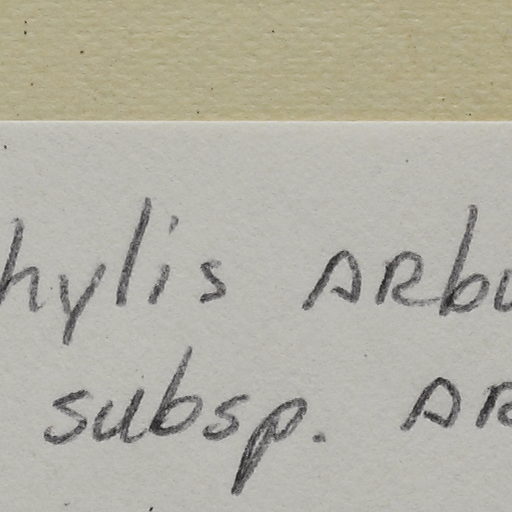 hylis ARbu
subsp. AR